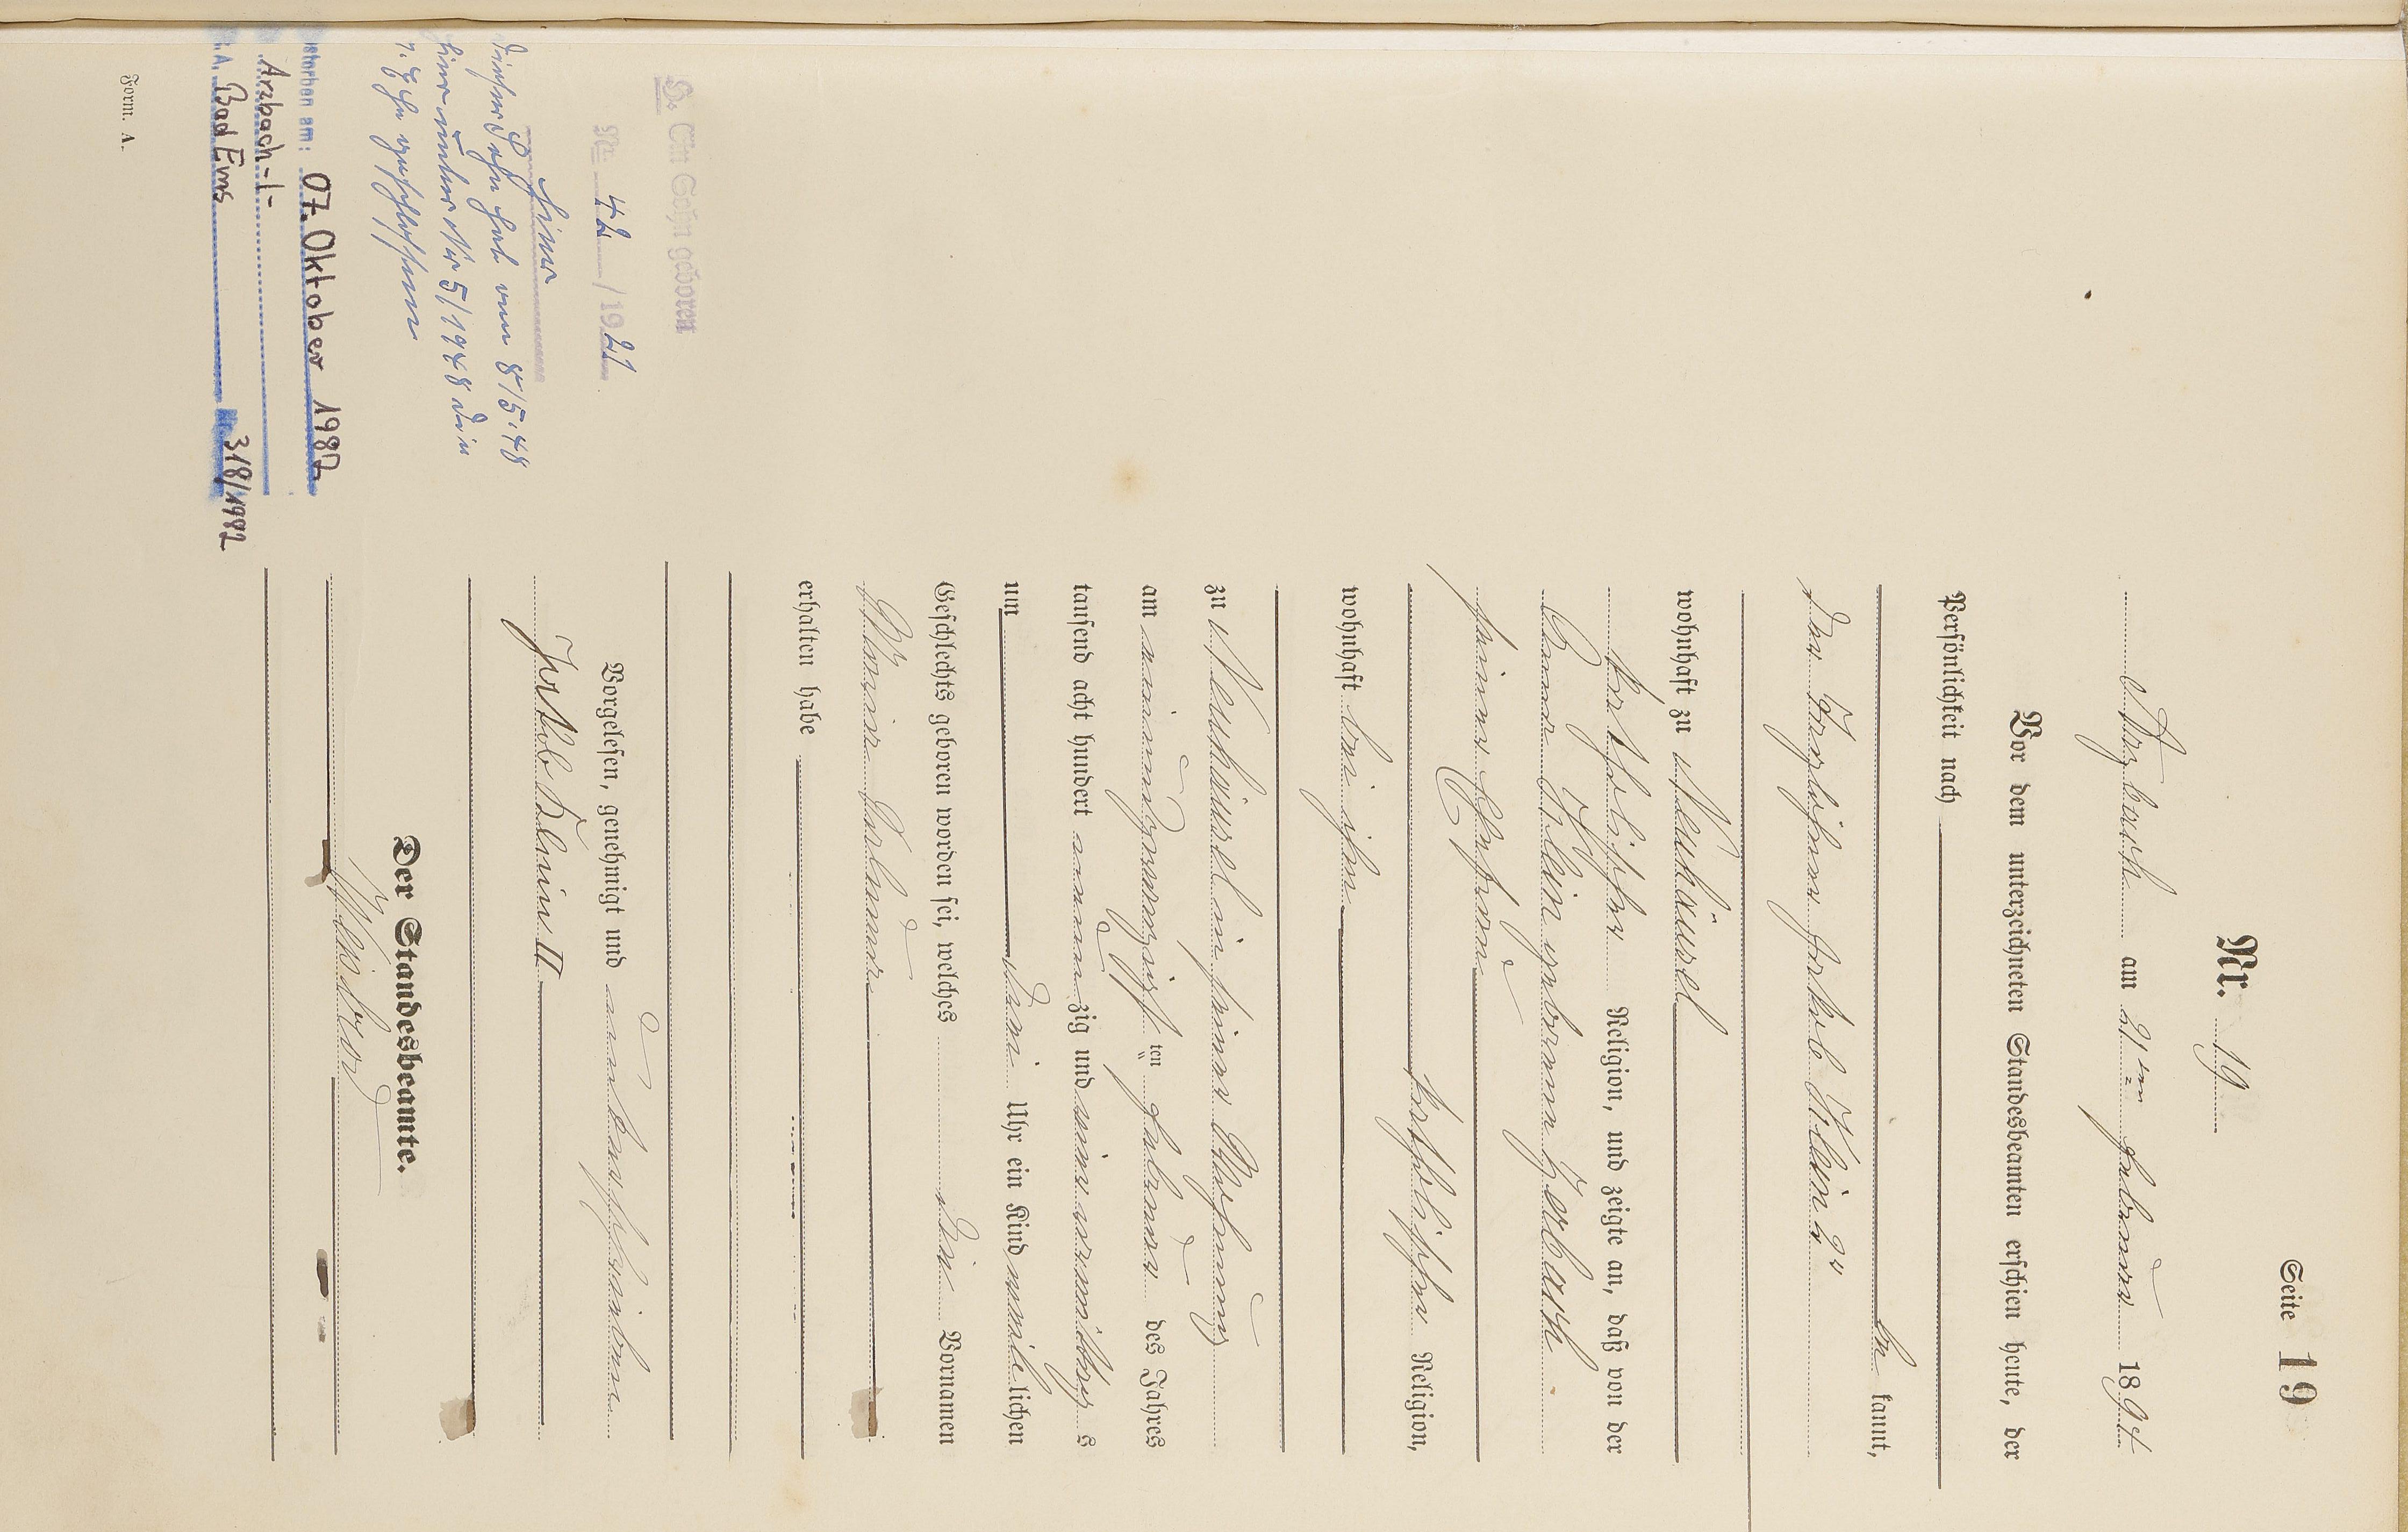 Seite 19
Nr. 19
Arzbach am 21ten Februar 1891
Vor dem unterzeichneten Standesbeamten erschien heute, der
Persönlichkeit nach
be kannt,
der Jakob Klein 2r
wohnhaft zu Neuhäusel
katholischer Religion, und zeigte an, daß von der
Anna Klein geborenen
seiner Ehefrau
katholischer Religion,
wohnhaft bei ihm
zu Neuhäusel in seiner Wohnung
am einundzwanzigsten ten Februar des Jahres
tausend acht hundert neunzig und eins vormittags
um drei Uhr ein Kind lichen
Geschlechts geboren worden sei, welches die Vornamen
erhalten habe
Vorgelesen, genehmigt und unterschrieben
Jakob Klein II
Der Standesbeamte.
S. Ein Sohn geboren
Nr. 42 / 1921
hier
dieser Sohn hat am 8/5.48
hier unter Nr 5/1948 die
Ehe geschlossen
storben am: 07. Oktober 1982
Arzbach -1-
.A. Bad Ems Nr. 318/1982
Form. A.